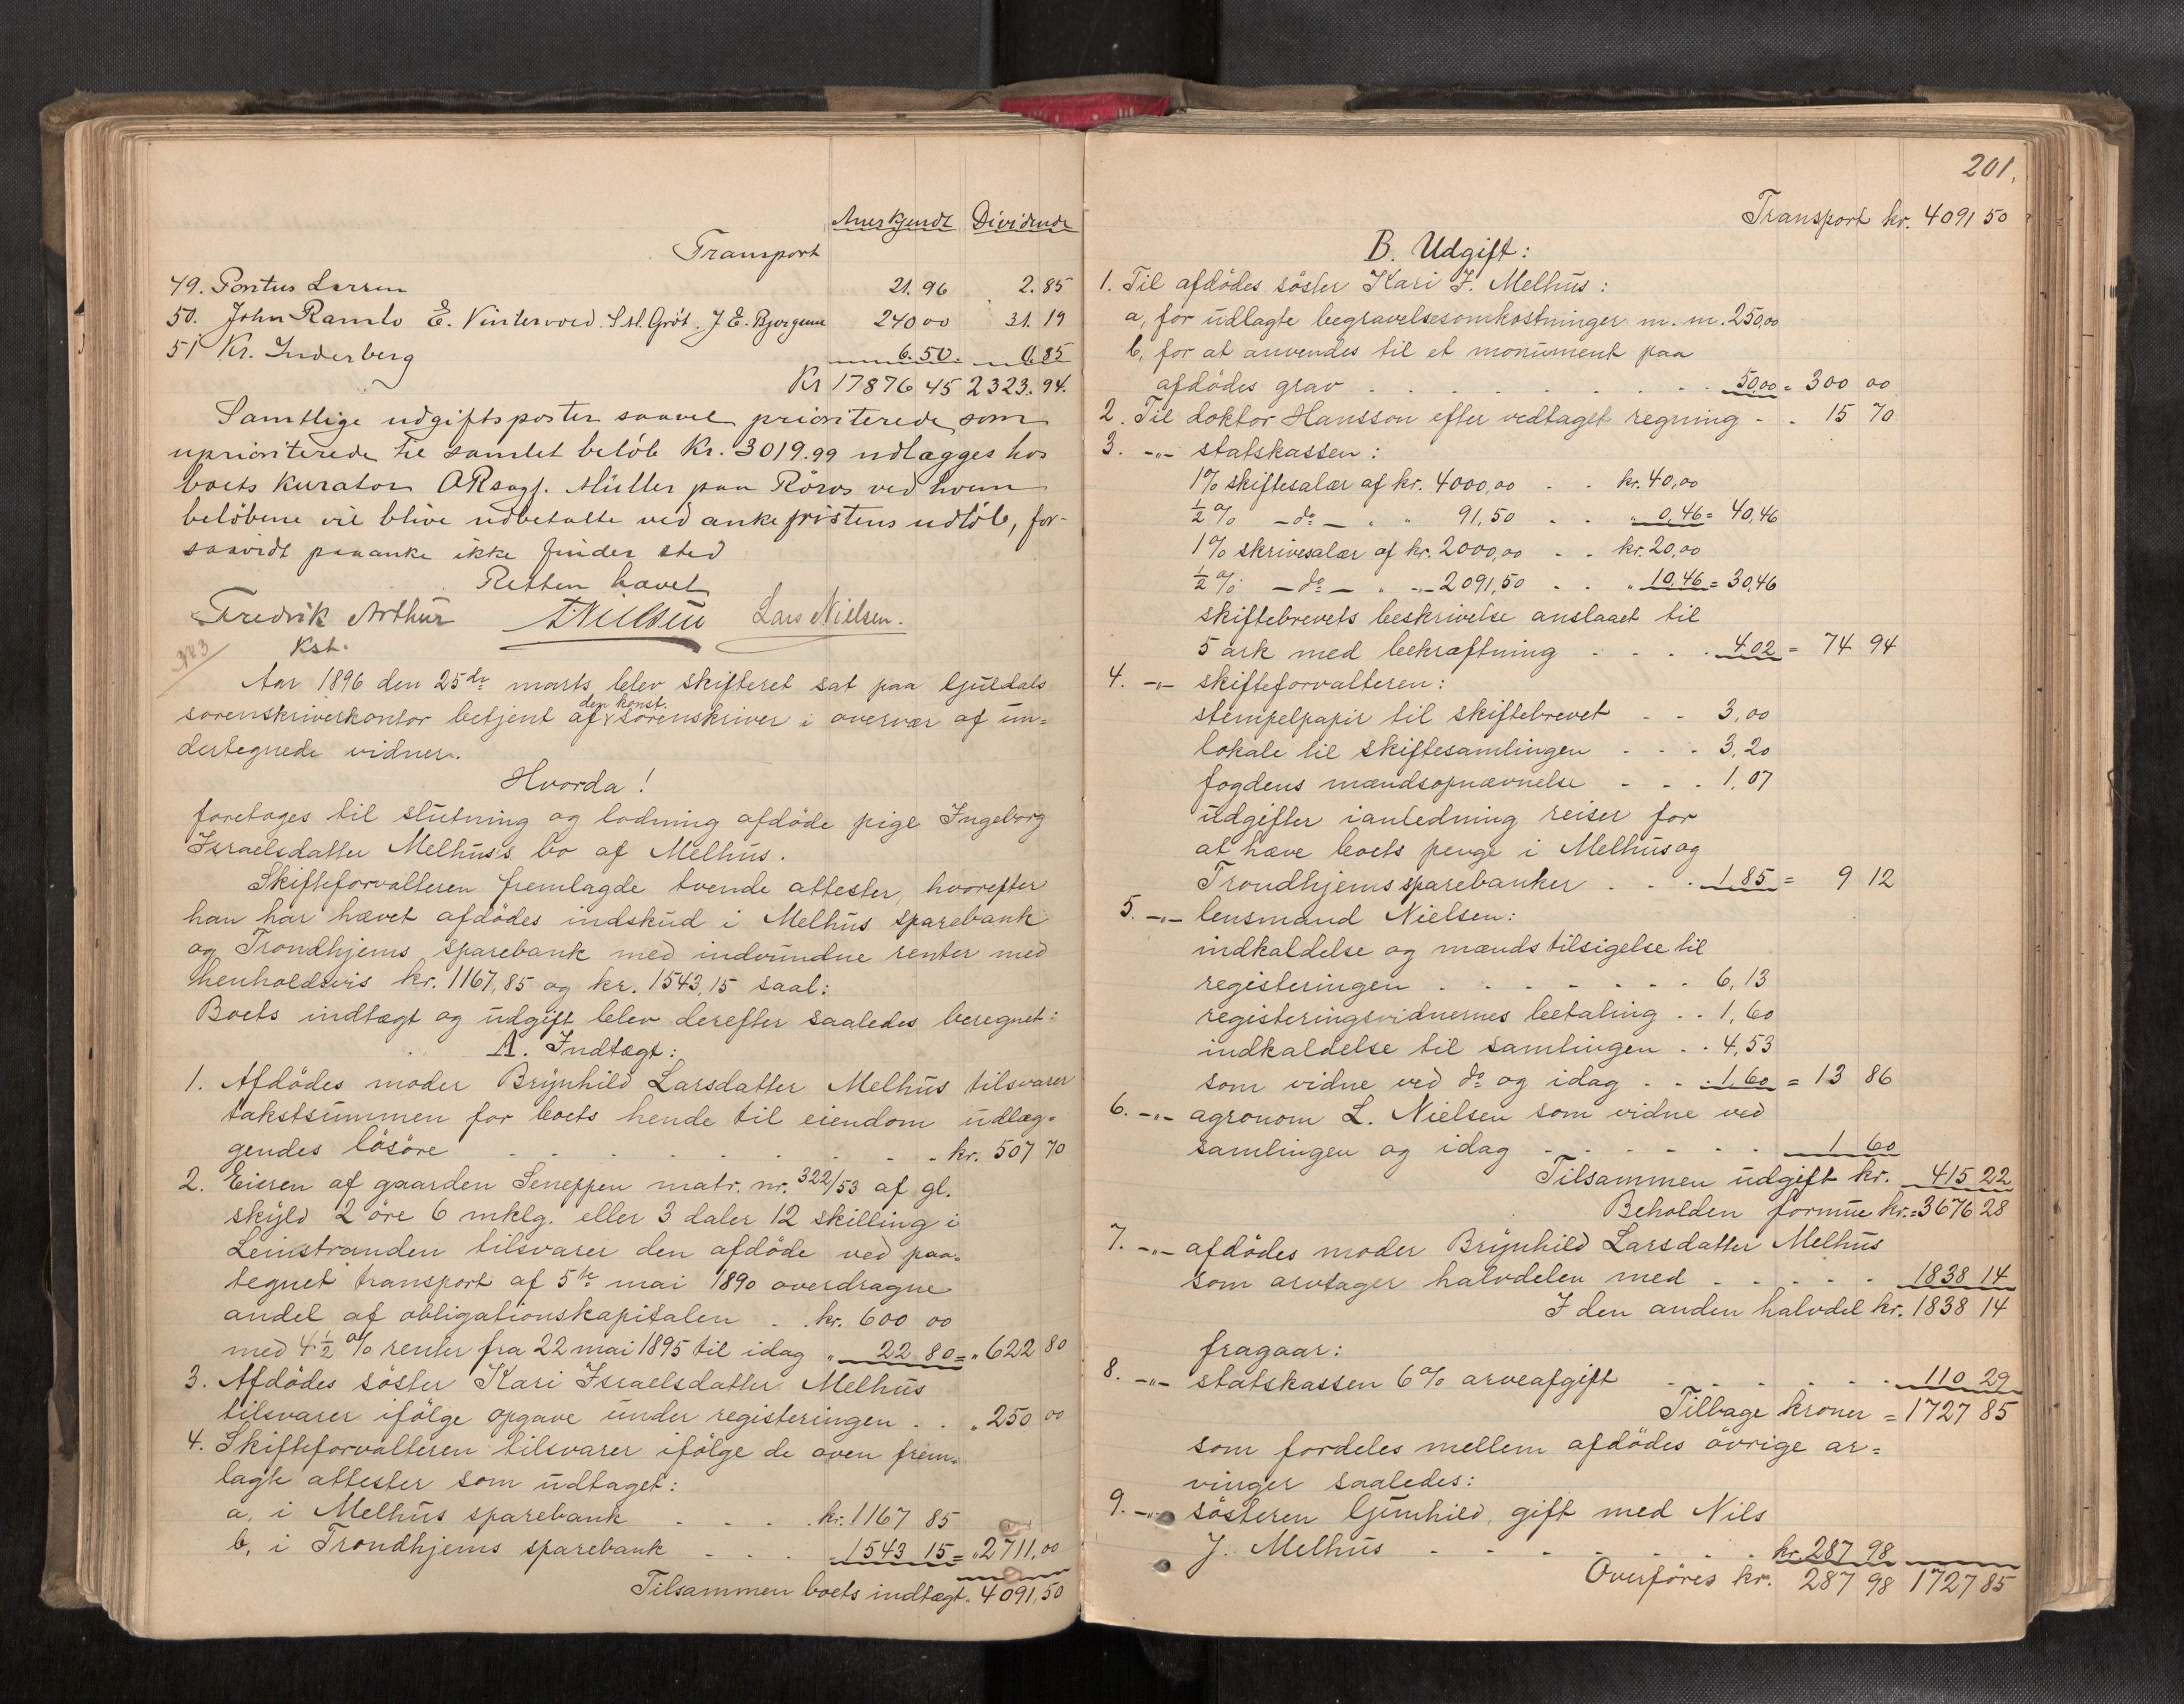 Anerkjendt Dividende
Transport
49. Pontus Larsen 21.96 2.85
50. John Ramlo E. Vintervold. S. st. Gröt. J E. Bjørgum 240 00 31.19
51 Kr. Inderberg 6.50. 0.85
Kr 17876 45 2323.94.
Samtlige udgiftsposter saavel prioriterede som
uprioriterede til samlet beløb Kr. 3019.99 udlægges hos
boets kurator ORsagf. Müller paa Röros ved hvem
beløbene vil blive udbetalte ved ankefristens udløb, for-
saavidt paaanke ikke finder sted
Retten hævet
Fredrik Arthur TNielsen Lars Nielsen.
Kst.
Aar 1896 den 25de marts blev skifteret sat paa Guldals
sorenskriverkontor betjent af den konst. sorenskriver i overvær af un-
dertegnede vidner.
Hvorda!
foretoges til slutning og lodning afdöde pige Ingeborg
Israelsdatter Melhus's bo af Melhus.
Skifteforvalteren fremlagde tvende attester, hvorefter
han har hævet afdödes indskud i Melhus sparebank
og Trondhjems sparebank med indvundne renter med
henholdsvis kr. 1167,85 og kr. 1543,15 saal:
Boets indtægt og udgift blev derefter saaledes beregnet:
A. Indtægt:
1. Afdödes moder Brynhild Larsdatter Melhus tilsvarer
takstsummen for boets hende til eiendom udlæg-
gendes lösöre . . . . . . . . kr. 507 70
2. Eieren af gaarden Seneppen matr. nr. 322/53 af gl.
skyld 2 öre 6 mklg. eller 3 daler 12 skilling i
Leinstranden tilsvarer den afdöde ved paa-
tegnet transport af 5te mai 1890 overdragne
andel af obligationskapitalen . . kr. 600 00
med 4½ % renter fra 22 mai 1895 til idag " 22 80 = " 622 80
3. Afdödes söster Kari Israelsdatter Melhus
tilsvarer ifölge opgave under registeringen . . " 250 00
4. Skifteforvalteren tilsvarer ifölge de oven frem-
lagte attester som udtaget:
a, i Melhus sparebank . . . . kr. 1167 85
b, i Trondhjems sparebank . . . . " 1543 15 = " 2711,00
Tilsammen boets indtægt " 4091,50
201.
Transport kr. 4091 50
B. Udgift:
1. Til afdödes söster Kari I. Melhus:
a, for udlagte begravelsesomkostninger m. m. 250,00
b, for at anvendes til et monument paa
afdödes grav . . . . . . . . . . 50,00 = 300 00
2. Til doktor Hansson efter vedtaget regning . . 15 70
3. -"- statskassen:
1% skiftesalær af kr. 4000,00 . . kr. 40,00
½ % - do - " " 91,50 . . " 0,46 = 40,46
1% skrivesalær af kr. 2000,00 . . kr. 20,00
½ % - do - " -"- 2091,50 . . " 10,46 = 30,46
skiftebrevets beskrivelse anslaaet til
5 ark med bekræftning . . . . 4.02 = 74 94
4. -"- skifteforvalteren:
stempelpapir til skiftebrevet . . 3,00
lokale til skiftesamlingen . . . 3,20
fogdens mændsopnævnelse . . . 1,07
udgifter ianledning reiser for
at hæve boets penge i Melhus og
Trondhjems sparebanker . . . 1,85 = 9 12
5. -"- lensmand Nielsen:
indkaldelse og mænds tilsigelse til
registeringen . . . . . . . 6,13
registeringsvidnernes betaling . . 1,60
indkaldelse til samlingen . . 4,53
som vidne ved do og idag . . . 1,60 = 13 86
6. -"- agronom L. Nielsen som vidne ved
samlingen og idag . . . . . . 1 60
Tilsammen udgift kr. 415 22
Beholden formue kr. = 3676 28
7. -"- afdödes moder Brynhild Larsdatter Melhus
som arvtager halvdelen med . . . . . 1838 14
I den anden halvdel kr. 1838 14
fragaar:
8. -"- statskassen 6% arveafgift . . . . . . 110 29
Tilbage kroner = 1727 85
som fordeles mellem afdödes övrige ar-
vinger saaledes:
9. -"- søsteren Gunhild, gift med Nils
J. Melhus . . . . . . . . kr. 287 98
Overföres kr. 287 98 1727 85